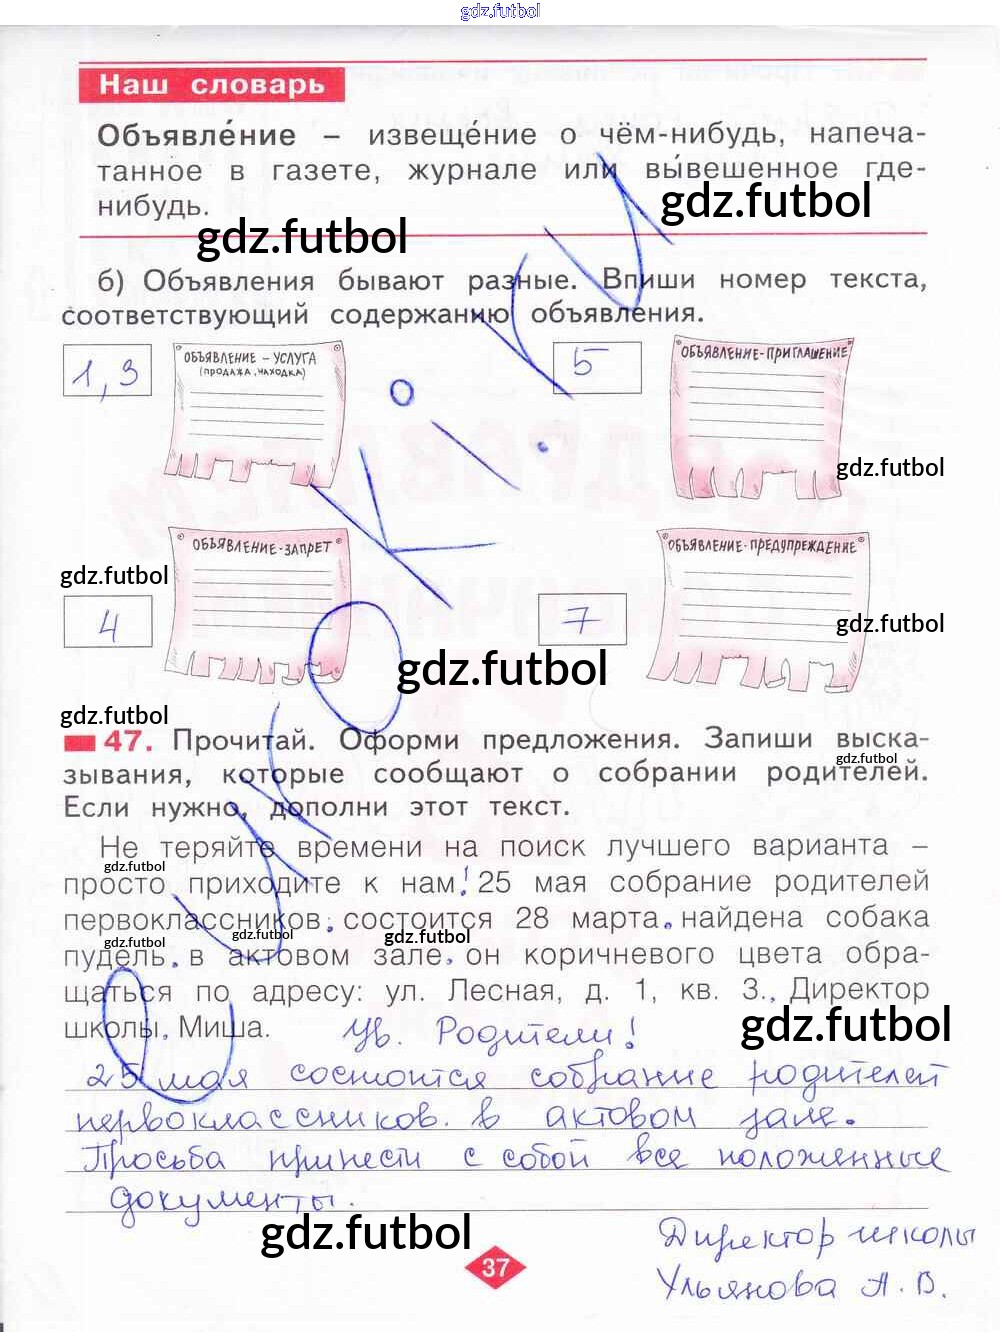 gdz.futbol
Наш словарь
Объявле́ние – извеще́ние о чём-нибудь, напеча-
танное в газете, журнале или вы́вешенное где-
gdz.futbol
нибудь.
gdz.futbol
б) Объявления бывают разные. Впиши номер текста,
соответствующий содержанию объявления.
1,3
ОБЪЯВЛЕНИЕ - УСЛУГА
(ПРОДАЖА, НАХОДКА)
5
ОБЪЯВЛЕНИЕ-ПРИГЛАШЕНИЕ
gdz.futbol
ОБЪЯВЛЕНИЕ-ЗАПРЕТ
ОБЪЯВЛЕНИЕ-ПРЕДУПРЕЖДЕНИЕ
gdz.futbol
4
7
gdz.futbol
gdz.futbol
gdz.futbol
47. Прочитай. Оформи предложения. Запиши выска-
gdz.futbol
зывания, которые сообщают о собрании родителей.
Если нужно, дополни этот текст.
Не теряйте времени на поиск лучшего варианта –
gdz.futbol
просто приходите к нам! 25 мая собрание родителей
первоклассников. состоится 28 марта. найдена собака
gdz.futbol
gdz.futbol
gdz.futbol
пудель. в актовом зале. он коричневого цвета обра-
щаться по адресу: ул. Лесная, д. 1, кв. 3., Директор
школы, Миша. Ув. Родители!
gdz.futbol
25 мая состоится собрание родителей
первоклассников. в актовом зале.
Просьба принести с собой все положенные
документы.
gdz.futbol
Директор школы
Ульянова А. В.
37